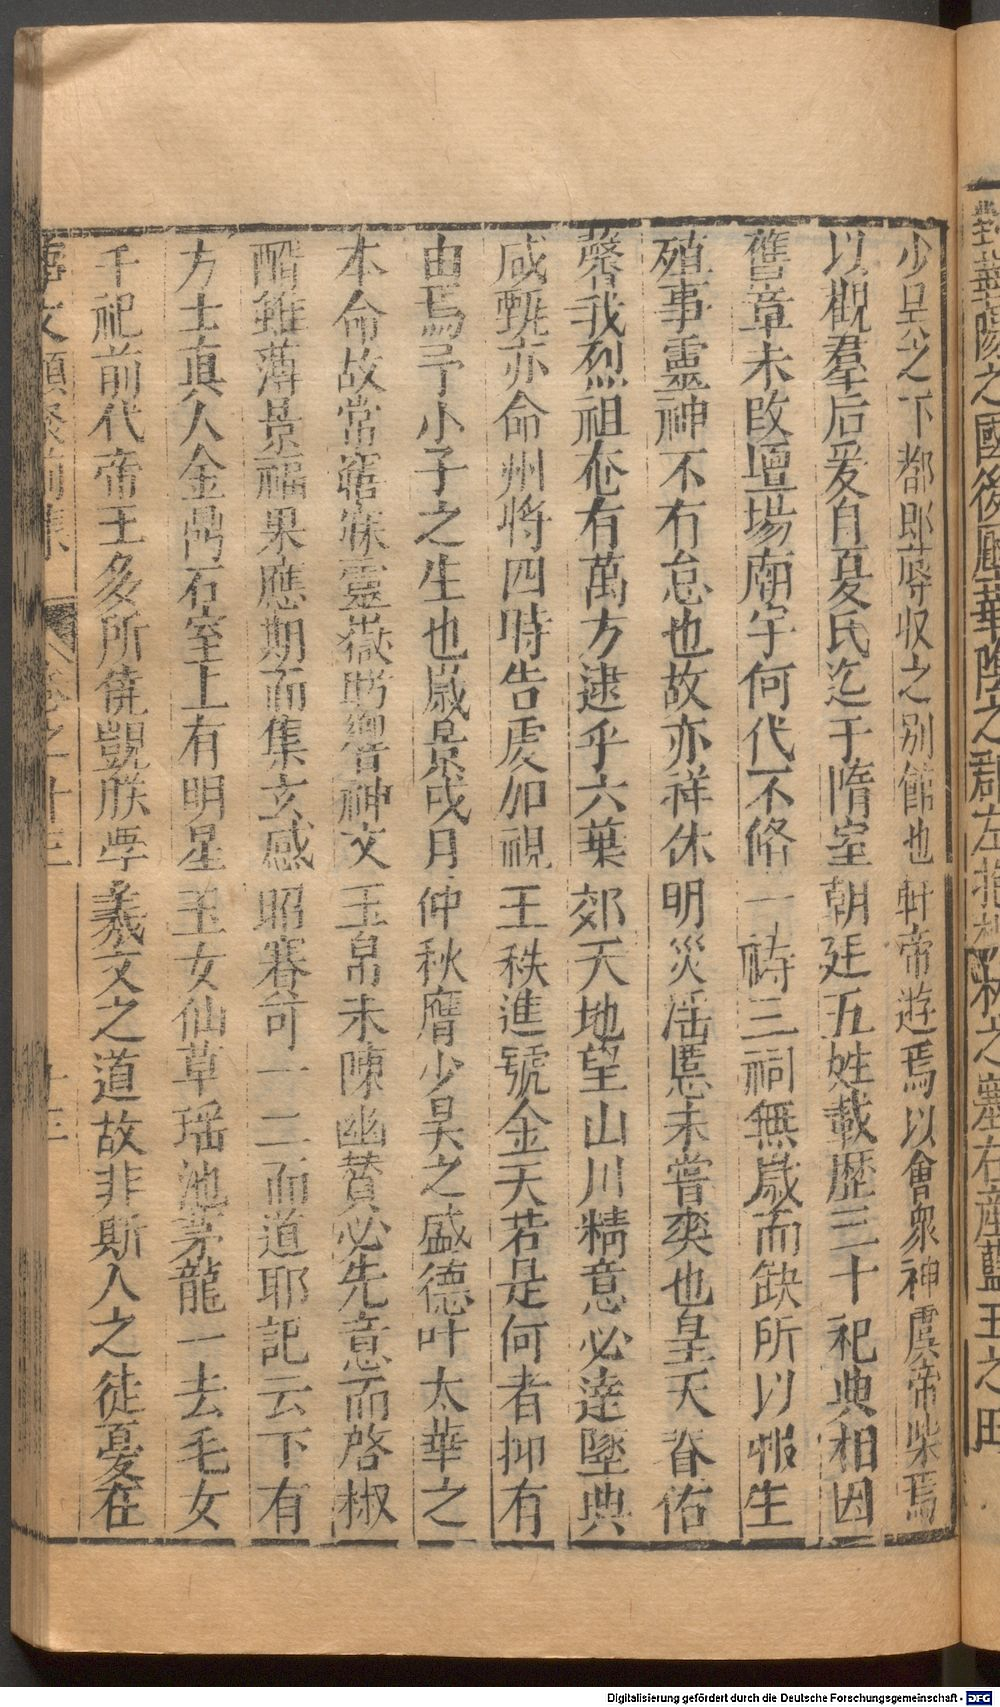 對華陰之國後壓華陰之郡左抱桃林之塞右産藍玉之田
少昊之下都即蓐收之别館也軒帝遊焉以會衆神虞帝柴焉
以觀羣后爰自夏氏迄于隋室朝廷五姓載歷三十祀典相因
舊章未改壇場廟宇何代不脩一禱三祠無歳而缺所以報生
殖事靈神不有怠也故亦祥休明災滛慝未嘗爽也皇天眷佑
馨我烈祖奄有萬方逮乎六葉郊天地望山川精意必達墜典
咸甄亦命州將四時告虔加視王秩進號金天若是何者抑有
由焉予小子之生也歳景戌月仲秋膺少昊之盛德叶太華之
本命故常寤寐靈嶽肹蠁神交玉帛未陳幽賛必先意而啓椒
醑雖薄景福果應期而集玄感昭賽可一二而道耶記云下有
方士真人金鼎石室上有明星玉女仙草瑶池茅龍一去毛女
千祀前代帝王多所僥覬朕學羲文之道故非斯人之徒憂在
文類聚前集 卷之十三 十三
Digitalisierung gefördert durch die Deutsche Forschungsgemeinschaft - DFG